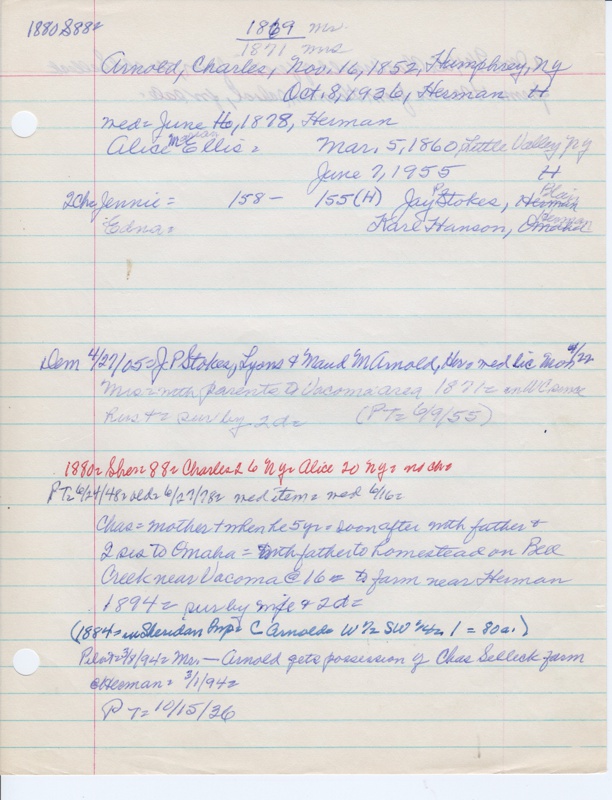 1880 S 88=
1869 mr.
1871 mrs
Arnold, Charles, Nov. 16, 1852, Humphrey, Ny
Oct. 8, 1936, Herman H
med= June 16, 1878, Herman
Alice Marian Ellis = Mar. 5, 1860, Little Valley Ny
June 7, 1955 H
2ch= Jennie = 158- 155(H) Jay P Stokes, Herman Blair
Edna = Karl Hanson, Omaha Herman
Dem 4/27/05= J.P. Stokes, Lyons & Maud M Arnold, Her= med lic Mon 4/22
Mrs= with parents to Vacoma area 1871= in WC since
Hus += sur by 2d= (PT= 6/9/55)
1880= Sher= 88= Charles 26 Ny= Alice 20 Ny= no ch=
PT= 6/24/48= old= 6/27/78= med item= med 6/16=
Chas= mother + when he 5yr= soon after with father &
2 sis to Omaha= with father to homestead on Bell
Creek near Vacoma @ 16= to farm near Herman
1894= sur by wife & 2d=
(1884= in Sheridan Pmp= C Arnold= W 1/2 SW 1/4 1 = 80a.)
Pilot= 3/8/94= Mr. — Arnold gets possession of Chas Selleck farm
@ Herman= 3/1/94=
PT= 10/15/36